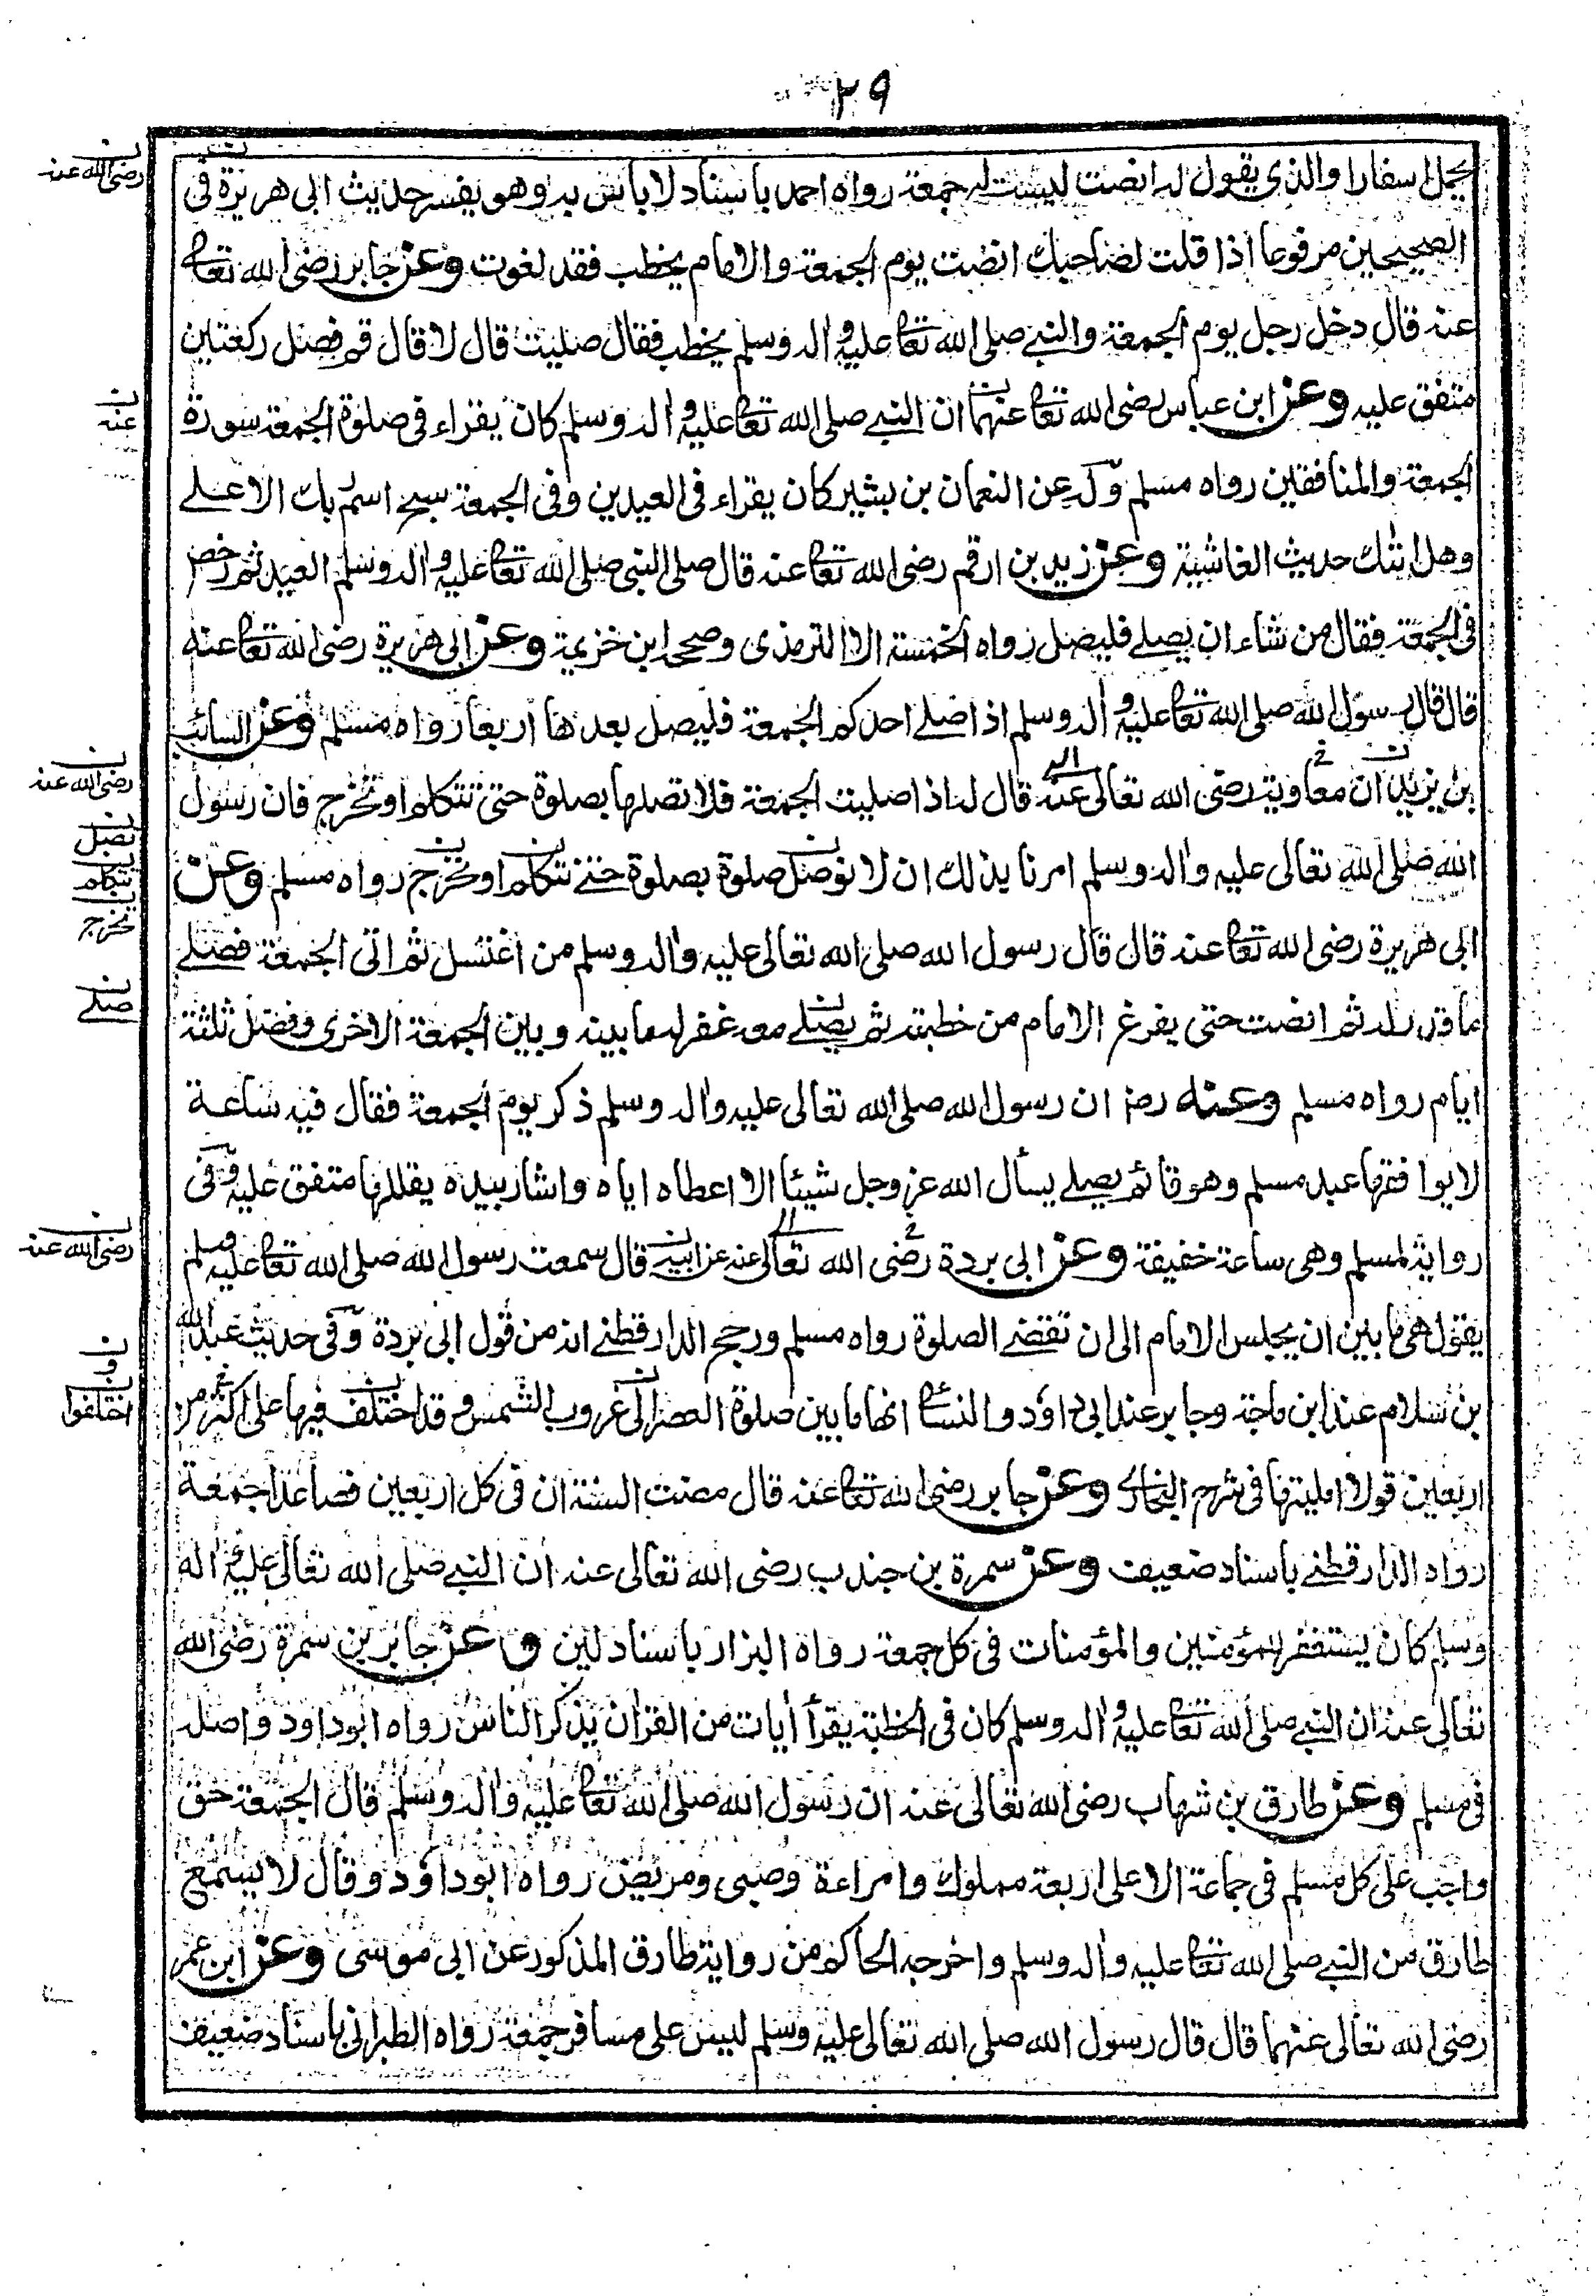 ٢٩
يحمل اسفارا والذي يقول له انصت ليست له جمعة رواه احمد باسناد لا باس به وهو يفسر حديث ابى هريرة فى
الصحيحين مرفوعا اذا قلت لصاحبك انصت يوم الجمعة والامام يخطب فقد لغوت وعن جابر رضى الله تعالى
عنه قال دخل رجل يوم الجمعة والنبى صلى الله تعالى عليه واله وسلم يخطب فقال صليت قال لا قال قم فصل ركعتين
متفق عليه وعن ابن عباس رضى الله تعالى عنهما ان النبى صلى الله تعالى عليه واله وسلم كان يقراء فى صلوة الجمعة سورة
الجمعة والمنافقين رواه مسلم وله عن النعمان بن بشير كان يقراء فى العيدين وفى الجمعة سبح اسم ربك الاعلى
وهل اتٰك حديث الغاشية وعن زيد بن ارقم رضى الله تعالى عنه قال صلى النبى صلى الله تعالى عليه واله وسلم العيد ثم رخص
فى الجمعة فقال من شاء ان يصلى فليصل رواه الخمسة الا الترمذى وصححه ابن خزيمة وعن ابى هريرة رضى الله تعالى عنه
قال قال رسول الله صلى الله تعالى عليه واله وسلم اذا صلى احدكم الجمعة فليصل بعدها اربعا رواه مسلم وعن السائب
بن يزيد ان معاوية رضى الله تعالى عنه قال له اذا صليت الجمعة فلا تصلها بصلوة حتى تتكلم او تخرج فان رسول
الله صلى الله تعالى عليه واله وسلم امرنا بذلك ان لا نوصل صلوة بصلوة حتى نتكلم او نخرج رواه مسلم وعن
ابى هريرة رضى الله تعالى عنه قال قال رسول الله صلى الله تعالى عليه واله وسلم من اغتسل ثم اتى الجمعة فصلى
ما قدر له ثم انصت حتى يفرغ الامام من خطبته ثم يصلى معه غفر له ما بينه وبين الجمعة الاخرى وفضل ثلثة
ايام رواه مسلم وعنه رض ان رسول الله صلى الله تعالى عليه واله وسلم ذكر يوم الجمعة فقال فيه ساعة
لا يوافقها عبد مسلم وهو قائم يصلى يسأل الله عز وجل شيئا الا اعطاه اياه واشار بيده يقللها متفق عليه وفى
رواية لمسلم وهى ساعة خفيفة وعن ابى بردة رضى الله تعالى عنه عن ابيه قال سمعت رسول الله صلى الله تعالى عليه وسلم
يقول هى ما بين ان يجلس الامام الى ان تقضى الصلوة رواه مسلم ورجح الدارقطنى انه من قول ابى بردة وفى حديث عبد الله
بن سلام عند ابن ماجة وجابر عند ابى داود والنسائى انها ما بين صلوة العصر الى غروب الشمس وقد اختلف فيها على اكثر من
اربعين قولا امليتها فى شرح البخارى وعن جابر رضى الله تعالى عنه قال مضت السنة ان فى كل اربعين فصاعدا جمعة
رواه الدارقطنى باسناد ضعيف وعن سمرة بن جندب رضى الله تعالى عنه ان النبى صلى الله تعالى عليه واله
وسلم كان يستغفر للمؤمنين والمؤمنات فى كل جمعة رواه البزار باسناد لين وعن جابر بن سمرة رضى الله
تعالى عنه ان النبى صلى الله تعالى عليه واله وسلم كان فى الخطبة يقرأ أيات من القران يذكر الناس رواه ابوداود واصله
فى مسلم وعن طارق بن شهاب رضى الله تعالى عنه ان رسول الله صلى الله تعالى عليه واله وسلم قال الجمعة حق
واجب على كل مسلم فى جماعة الا على اربعة مملوك وامراءة وصبى ومريض رواه ابوداؤد وقال لا يسمع
طارق من النبى صلى الله تعالى عليه واله وسلم واخرجه الحاكم من رواية طارق المذكور عن ابى موسى وعن ابن عمر
رضى الله تعالى عنهما قال قال رسول الله صلى الله تعالى عليه وسلم ليس على مسافر جمعة رواه الطبرانى باسناد ضعيف
رضى الله عنه
عنه
رضى الله عنه
نصل
نتكلم
نخرج
صلى
رضى الله عنه
و
اختلفوا